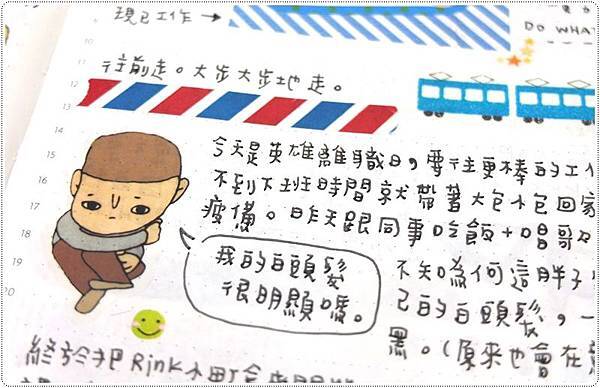 現已工作 →
DO WHAT
往前走。大步大步地走。
12
13
14
15
16
17
18
19
20
今天是英雄離職日，要往更棒的工
不到下班時間就帶著大包小包回家
疲憊。昨天跟同事吃飯+唱歌
我的白頭髮
很明顯嗎。
不知為何這胖子
己的白頭髮，一
黑。(原來也會在
終於把Rink小町